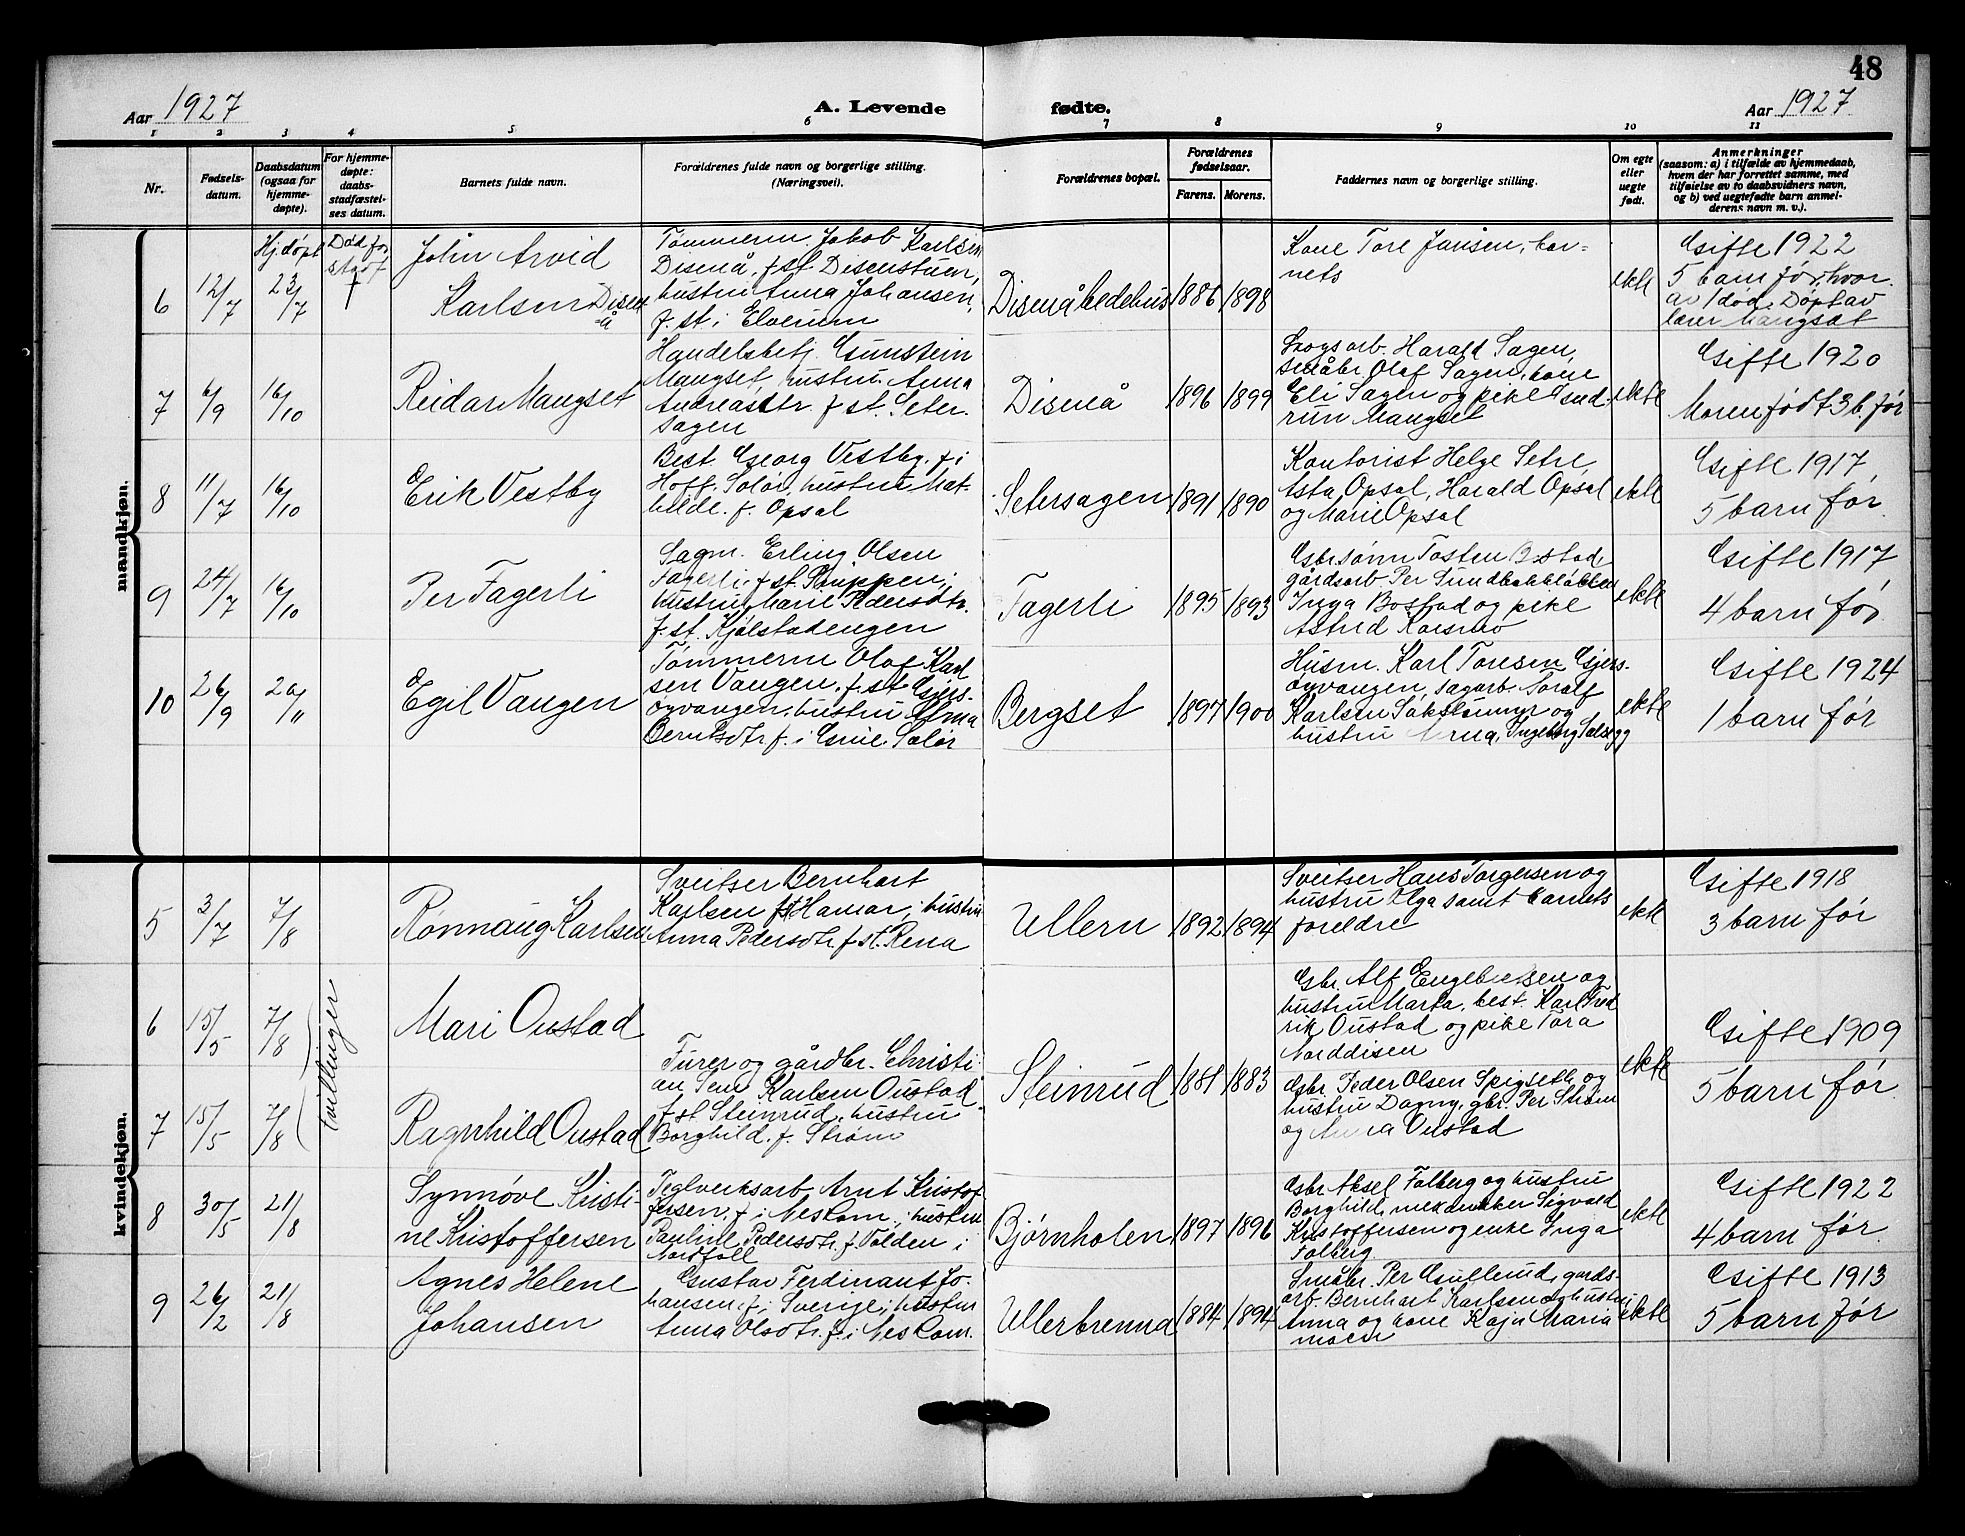 48
Aar 1927
A. Levende fødte.
Aar 1927
1 2 3 4 5 6 7 8 9 10 11
Nr.
Fødsels-
datum.
Daabsdatum
(ogsaa for
hjemme-
døpte).
For hjemme-
døpte:
daabs-
stadfæstel-
ses datum.
Barnets fulde navn.
Forældrenes fulde navn og borgerlige stilling.
(Næringsvei).
Forældrenes bopæl.
Forældrenes
fødselsaar.
Farens. Morens.
Faddernes navn og borgerlige stilling.
Om egte
eller
uegte
født.
Anmerkninger
(saasom: a) i tilfælde av hjemmedaab,
hvem der har forrettet samme, med
tilføielse av to daabsvidners navn,
og b) ved uegtefødte barn anmel-
derens navn m. v.).
mandkjøn.
6
12/7
Hj.døpt
23/7
Død før
stadf
†
John Arvid
Karlsen Disen
å
Tømmerm. Jakob Karlsen
Disenå, f. st. Disenstuen,
hustru Anna Johansen,
f. st. i Elverum
Disenå bedehus
1886
1898
Kone Tore Jansen, bar-
nets
ekte
Gifte 1922
5 barn før, hvor
av 1 død. Døpt av
lærer Mangset
7
6/9
16/10
Reidar Mangset
Handelsbetj. Gunstein
Mangset, hustru Anna
Andreasdtr. f. st. Seter-
sagen
Disenå
1896
1899
Skogsarb. Harald Sagen,
småbr. Olaf Sagen, kone
Eli Sagen og pike Gud-
run Mangset
ekte
Gifte 1920
Moren født 3 b. før
8
11/7
16/10
Erik Vestby
Best. Georg Vestby, f. i
Hoff, Solør, hustru Mat-
hilde f. Opsal
Setersagen
1891
1890
Kontorist Helge Setre,
Asta Opsal, Harald Opsal
og Marie Opsal
ekte
Gifte 1917
5 barn før
9
24/7
16/10
Per Fagerli
Sagm. Erling Olsen
Fagerli, f. st.
hustru Marie Pedersdtr.
f. st. Kjølstadengen
Fagerli
1895
1893
Gbr.sønn Tosten Bostad,
gårdsarb. Per Sundbakkløkken
Inga Bostad og pike
Astrid Korsmo
ekte
Gifte 1917
4 barn før
10
26/9
20/11
Egil Vangen
Tømmerm Olaf Karl
sen Vangen, f. st. Gjers-
øyvangen, hustru Alma
Berntsdtr. f. i Grue, Solør
Bergset
1897
1900
Husm. Karl Toresen Gjers-
øyvangen, sagarb. Toralf
Karlsen og
hustru Anna, Ingeborg
ekte
Gifte 1924
1 barn før
kvindekjøn.
5
3/7
7/8
Rønnaug Karlsen
Sveitser Bernhart
Karlsen f. st. Hamar, hustru
Anna Pedersdtr. f. st. Rena
Ullern
1892
1894
Sveitser Hans Torgersen og
hustru Olga samt barnets
foreldre
ekte
Gifte 1918
3 barn før
6
15/5
7/8
tvillinger
Mari Oustad
Furer og gårdbr. Christi
an Sem Karlsen Oustad
f. st. Steinrud, hustru
Borghild f. Strøm
Steinrud
1881
1883
Gbr. Alf Engebretsen og
hustru Marta, best. Karl Fred
rik Oustad og pike Tora
Norddisen
ekte
Gifte 1909
5 barn før
7
15/5
7/8
Ragnhild Oustad
Gbr. Peder Olsen Spigseth og
hustru Dagny, gbr. Per Strøm
og Anna Oustad
8
30/5
21/8
Synnøve Kristi-
ne Kristoffersen
Teglverksarb. Arnt Kristof
fersen, f. i Nes Rom., hustru
Pauline Pedersdtr. f. Volden i
Nordfoll
Bjørnholen
1897
1896
Gbr. Aksel Folberg og hustru
Borghild, Sigvald
Kristoffersen og enke Inga
Folberg
ekte
Gifte 1922
4 barn før
9
26/2
21/8
Agnes Helene
Johansen
Gustav Ferdinant Jo-
hansen, f. i Sverige, hustru
Anna Olsdtr. f. i Nes Rom.
Ullerbrenna
1884
1894
Småbr. Per Gullerud, gårds-
arb. Bernhart Karlsen og hustru
Anna og kone Kaja Maria
moen
ekte
Gifte 1913
5 barn før